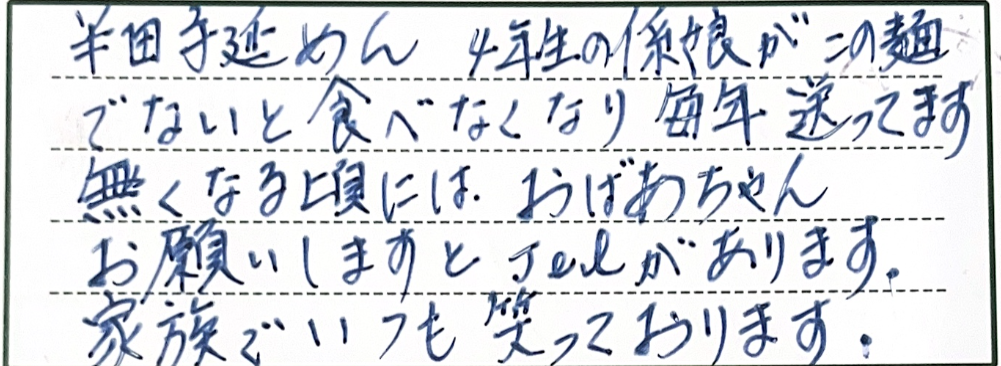 半田手延めん 4年生の孫娘がこの麺
でないと食べなくなり 毎年送ってます
無くなる頃には おばあちゃん
お願いしますと Telがあります。
家族でいつも笑っております。